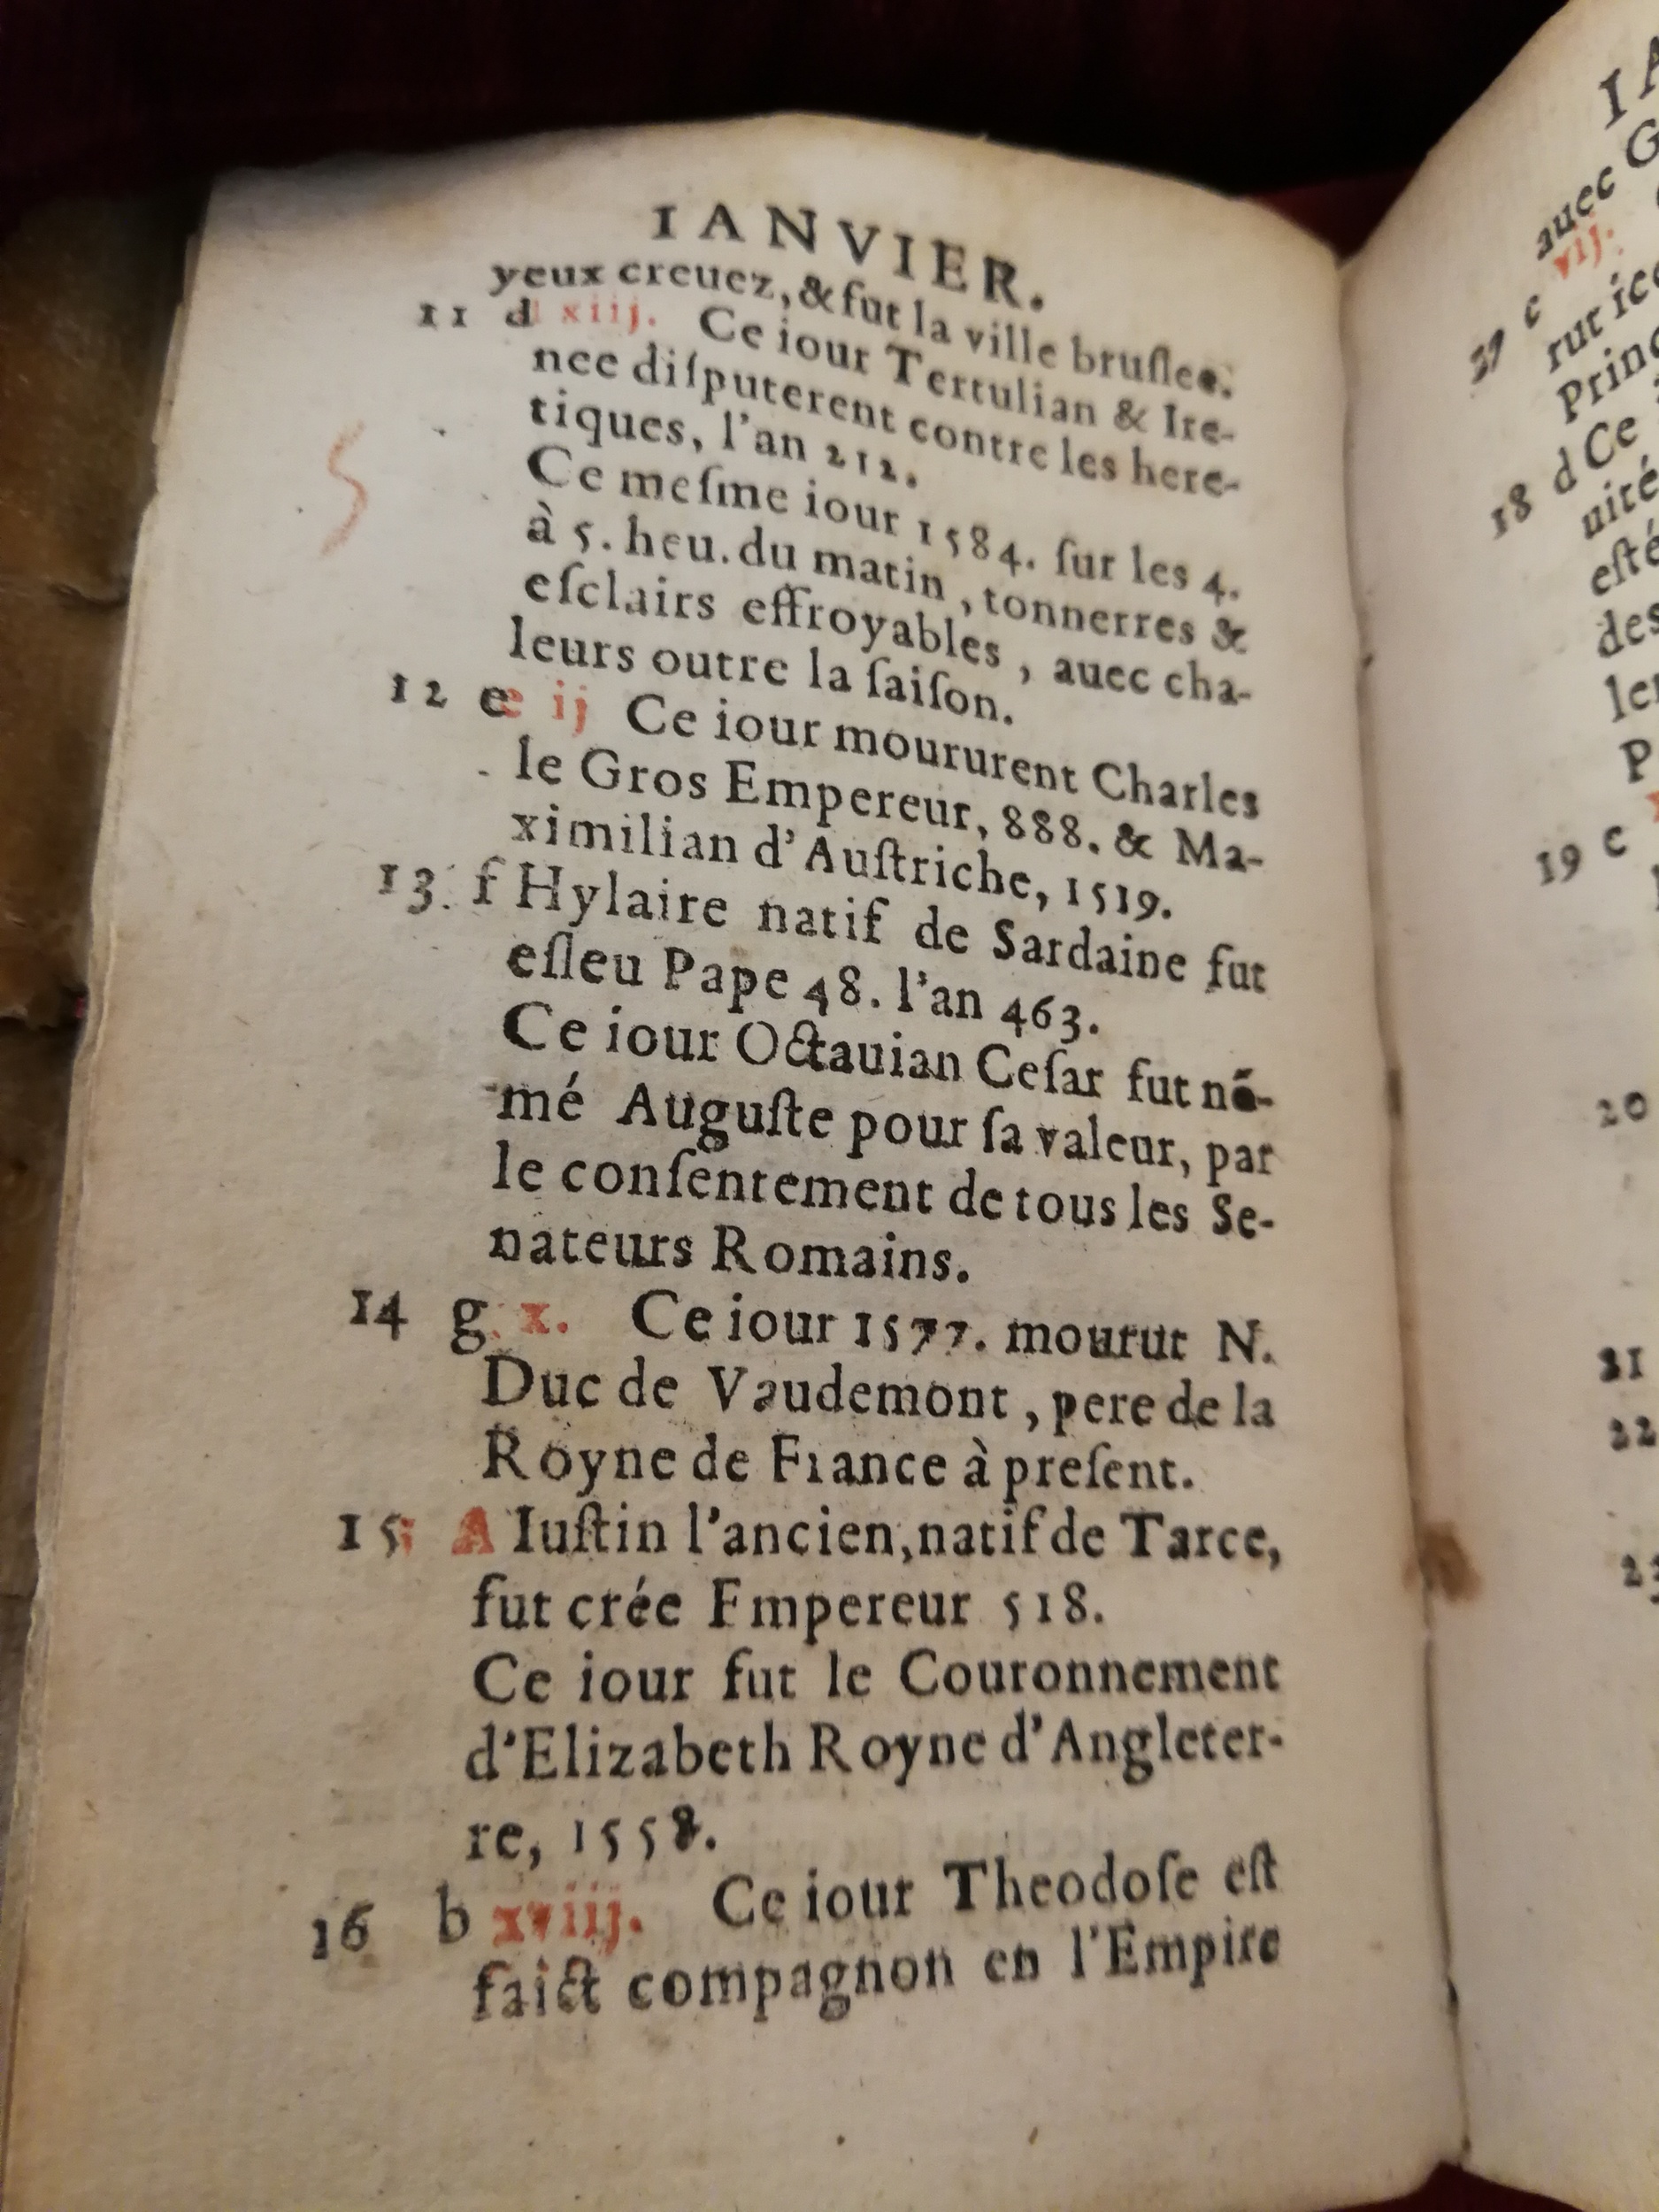 IANVIER.
yeux creuez, & fut la ville bruſlee.
11 d xiij. Ce iour Tertulian & Ire-
nee diſputerent contre les here-
tiques, l'an 212.
Ce meſme iour 1584. ſur les 4.
à 5. heu. du matin, tonnerres &
eſclairs effroyables, auec cha-
leurs outre la ſaiſon.
12 e ij Ce iour moururent Charles
le Gros Empereur, 888. & Ma-
ximilian d'Auſtriche, 1519.
13. f Hylaire natif de Sardaine fut
eſleu Pape 48. l'an 463.
Ce iour Octauian Ceſar fut nō-
mé Auguſte pour ſa valeur, par
le conſentement de tous les Se-
nateurs Romains.
14 g x. Ce iour 1577. mourut N.
Duc de Vaudemont, pere de la
Royne de France à preſent.
15 A Iuſtin l'ancien, natif de Tarce,
fut crée Empereur 518.
Ce iour fut le Couronnement
d'Elizabeth Royne d'Angleter-
re, 1558.
16 b xviij. Ce iour Theodoſe eſt
faict compagnon en l'Empire
IA
auec G
vij.
c
rut ice
Princ
18 d Ce
uité
eſté
des
P
19 e
20
21
22